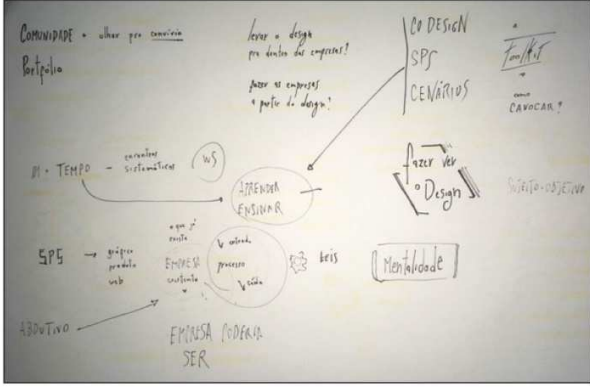 COMUNIDADE + olhar pro convívio
Portfólio
levar o design
pra dentro das empresas?
fazer as empresas
a partir do design?
CO DESIGN
SPS
CENÁRIOS
o
ToolKit
como
CAVOCAR?
TEMPO -
sistemáticas
WS
APRENDER
ENSINAR
fazer ver
o Design
SUJEITO-OBJETIVO
SPS → gráfico
produto
web
o que já
existe
EMPRESA
existente
entrada
processo
saída
leis
Mentalidade
ABDUTIVO
EMPRESA PODERIA
SER